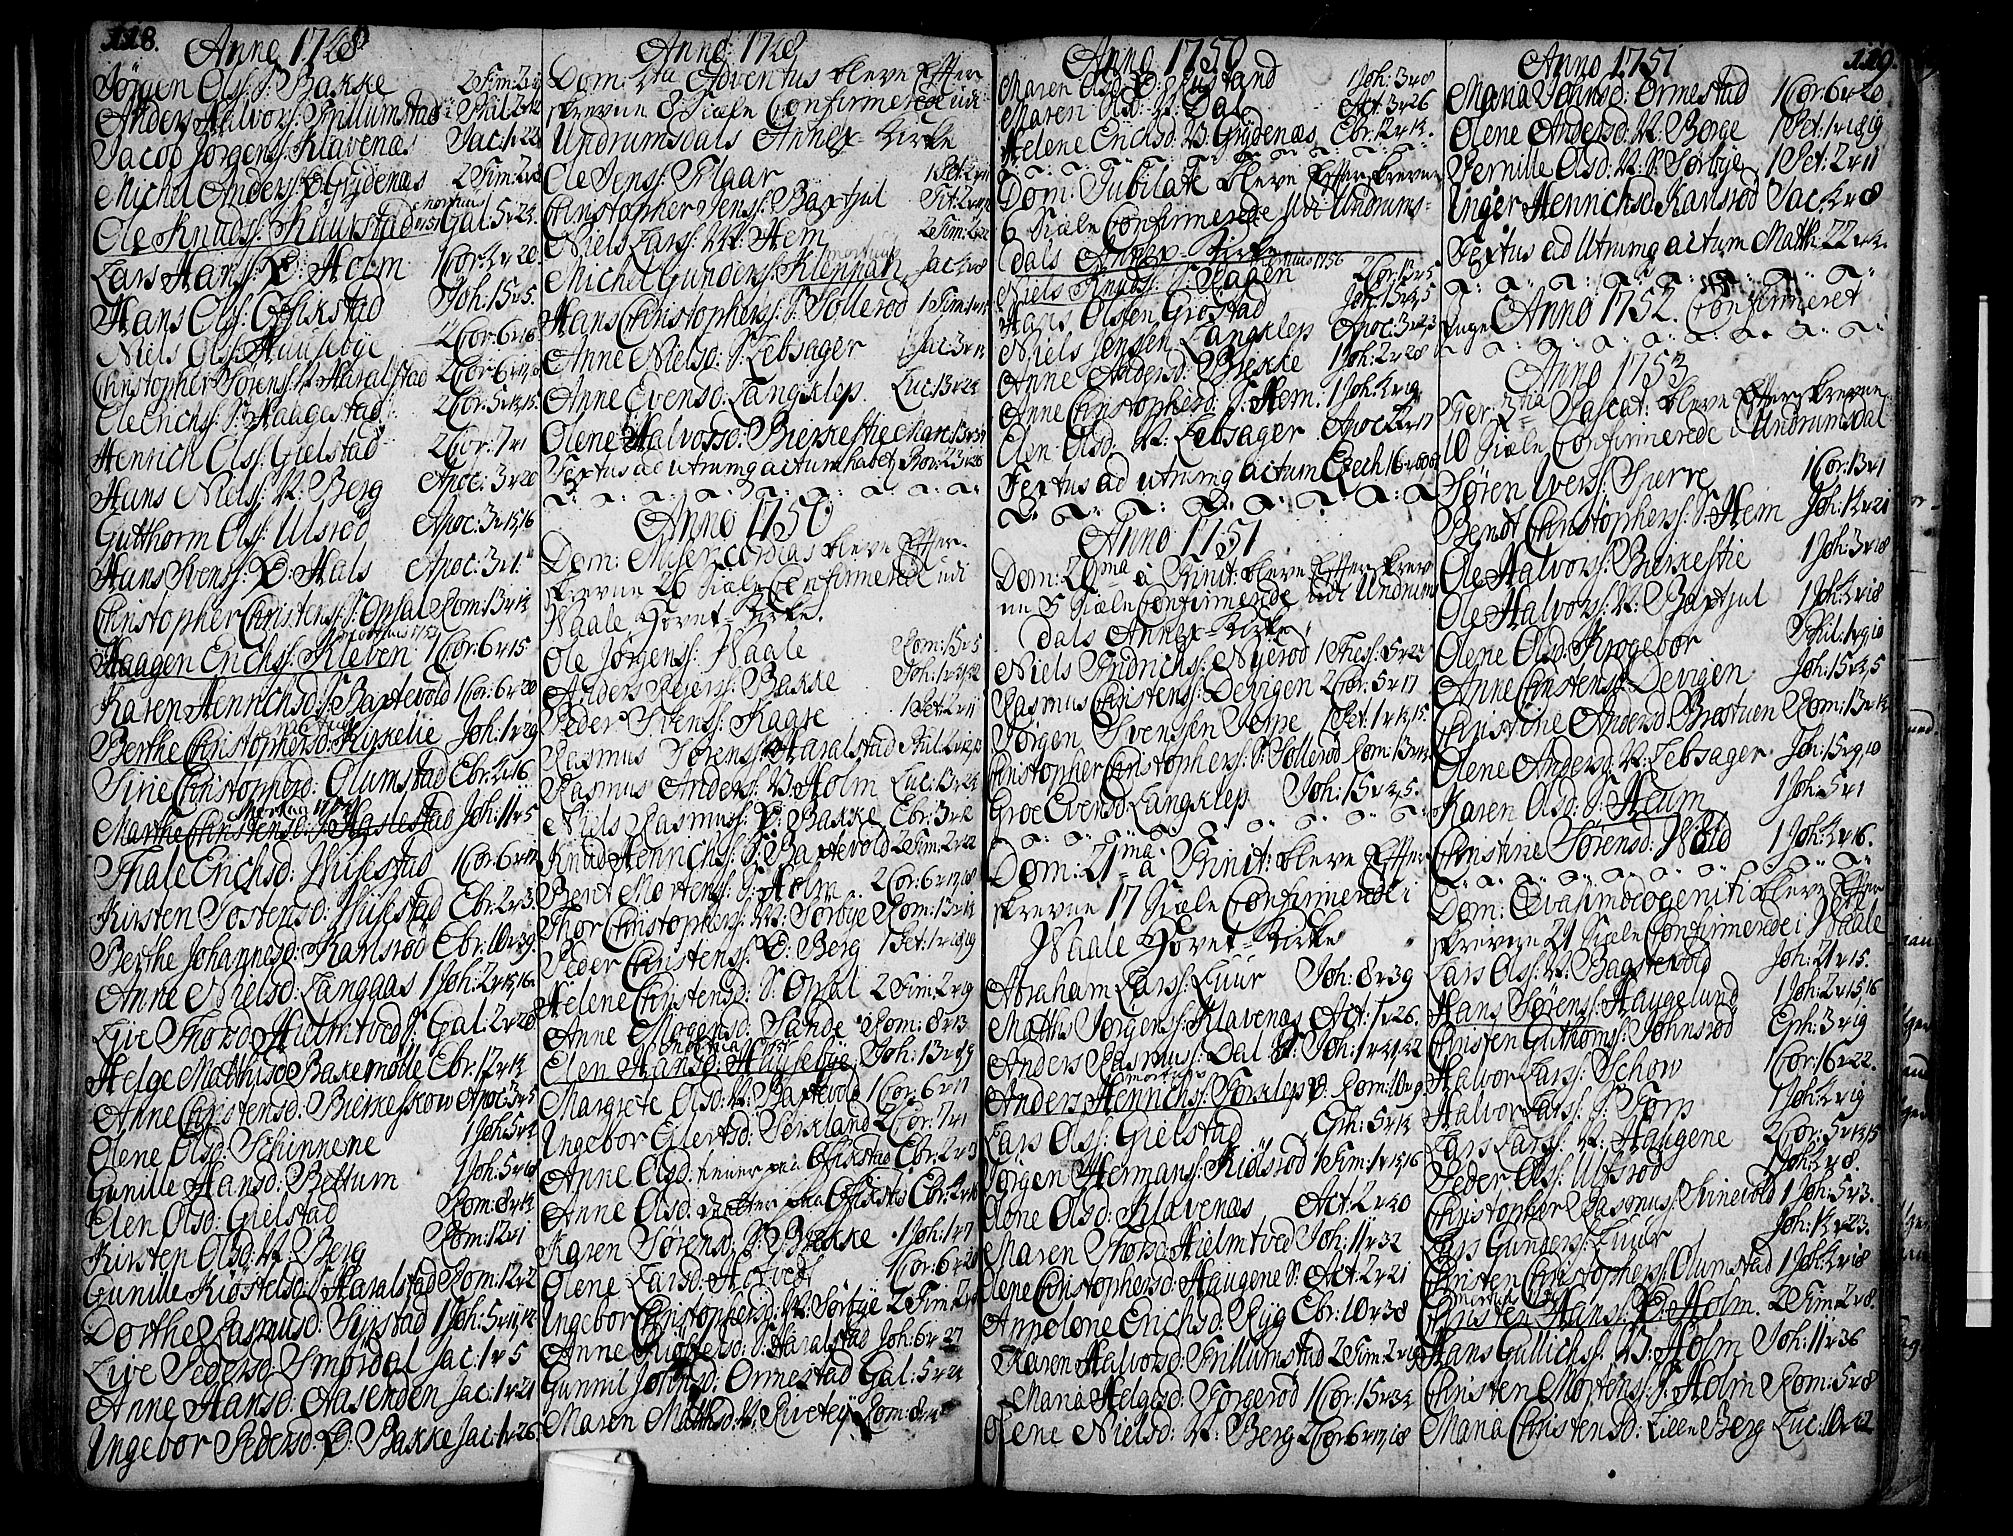 118.
Anno 1748
Jørgen Ols: S: Bakke 2 Tim: 2 v
Anders Halvors: Trillumstad Phil: 2 v 12
Jacob Jørgens: Klavenæs Jac: 1 v 22
Michel Anders: Ø: Grydenæs 2 Tim: 2 v
mortuus 1751
Ole Knuds: Gal: 5 v 24
Lars Hans: Ø: Holm 1 Cor: 4 v 20
Hans Ols: Effikstad Joh: 15 v 5
Niels Ols: Huusebye 2 Cor: 6 v 16
Christopher Sørens: V: Haralstad 2 Cor: 6 v
Ole Erichs: S: Haugestad 2 Cor: 5 v 14,15
Henrich Ols: Gielstad 2 Cor: 7 v 1
Hans Niels: V: Berg Apoc: 3 v 20
Gutthorm Ols: Ulsrød Apoc: 3 v 15,16
Hans Svens: Ø: Hals Apoc: 3 v 1
Christopher Christens: S: Opsal Rom: 13 v 14
mortuus 1752
Haagen Erichs: Kleven 1 Cor: 6 v 15
Karen Henrichsd: S: Baxtevold 1 Cor: 6 v 20
mortua
Berthe Christophersd: Kirkelie Joh: 1 v 29
Sirie Christophersd: Olumstad Ebr: 4 v 16
mortua 1749
Marthe Christensd: S: Haslestad Joh: 11 v 5
Thale Erichsd: Huikstad 1 Cor: 6 v
Kirsten Sostensd: Huikstad Ebr: 2 v 3
Berthe Johannesd: Karlsrød Ebr: 10 v 29
Anne Nielsd: Langaas 1 Joh: 2 v 15,16
Live Thord: Hielmtved S: Gal: 2 v 20
Helge Matthisd: Bakemølle Ebr: 12 v 14
Anne Christensd: Bierkeskow Apoc: 3 v 5
Olene Olsd: Schinnene 1 Joh: 5 v 4
Gunille Hansd: Bettum 1 Joh: 5 v 18
Elen Olsd: Gielstad Rom: 8 v 14
Kirsten Olsd: V: Berg Rom: 12 v 1
Gunille Kiøstelsd: S: Haralstad Rom: 12 v 2
Dorthe Rasmusd: Syrstad 1 Joh: 5 v 11,12
Live Pedersd: Smørdal Jac: 1 v 5
Anne Hansd: Aasenden Jac: 1 v 21
Ingebor Pedersd: Ø: Bakke Jac: 1 v 26
Anno 1748
Dom: 1ta Adventus bleve Effter-
skrevne 8 Siæle Confirmerede udi
Undrumsdals Annex-Kirke
Ole Jens: Klaar 1 Pet: 2 v 11
Christopher Jens: Baxtjul Tit: 2 v
Niels Lars: V: Hem 2 Tim: 2 v 22
mortuus
Michel Gunders: Klenhah Jac: 4 v 8
Hans Christophers: S: Sollerød 1 Tim: 1 v
Anne Nielsd: S: Lebsager Jac: 3 v
Anne Evensd: Langklep. Luc: 13 v 24
Olene Halvorsd: Bierkestie Marc: 13 v 37
Textus ad utrumq actum habet: Prov: 23 v 26
Anno 1750
Dom: Misericordias bleve Effter-
skrevne 26 Siæle Confirmerede udi
Waale Hovet-Kirke.
Ole Jørgens: Waale Rom: 15 v 5
Anders Reiers: Bakke Joh: 1 v 51,52
Peder Svens: Kaare 1 Pet: 2 v 11
Rasmus Sørens: Haralstad Phil: 2 v 12,13
Rasmus Anders: V: Holm Luc: 13 v 24
Niels Rasmus: Ø: Bakke Ebr: 3 v 12
Knud Henrichs: S: Baxtevold 2 Tim: 2 v 22
Bent Mortens: S: Holm 2 Cor: 6 v 17,18
Thor Christophers: V: Sørbye Rom: 13 v 14
Peder Christens: Ø: Berg 1 Pet: 1 v 18,19
Helene Christensd: S: Opsal 2 Tim: 2 v 19
Anne Mogensd: Sande Rom: 8 v 13
mortua 1751
Elen Hansd: Huusebye Joh: 13 v 8,9
Margrete Olsd: V: Baxtevold 1 Cor: 6 v 17
Ingebor Eilertsd: Serkland 2 Cor: 7 v 1
Anne Olsd: Effikstad Ebr: 2 v 3
Anne Olsd: Effikstad Ebr: 4 v 16
Karen Sørensd: S: Brekke 1 Joh: 1 v 7
Olene Larsd: Hotvedt 1 Cor: 6 v 20
Ingebor Christophersd: V: Sørbye 2 Tim: 2 v
Anne Kiøstelsd: S: Haralstad Joh: 6 v 27
Gunnil Johnsd: Ormestad Gal: 5 v 24
Maren Matthsd: V: Rom: 8 v
Anno 1750
Maren Olsd: 1 Joh: 3 v 8
Maren Olsd: V: Dal Act: 3 v 26
Helene Erichsd: V: Grydenæs Ebr: 12 v 14.
Dom: Jubilate bleve Effterskrevne
6 Siæle Confirmerede udi Undrums-
dals Annex-Kirke
mortuus 1756
Niels Knuds: S: Hagen 2 Cor: 13 v 5
Hans Olsen Grøstad Joh: 15 v 4,5
Niels Jensen Langklep Apoc: 3 v 2,3
Anne Andersd: Brekke 1 Joh: 2 v 28
Anne Christophersd: S: Hem: 1 Joh: 4 v 19
Elen Olsd: V: Lebsager Apoc: 22 v 17
Textus ad utrumq actum Ezech: 16 v 60
Anno 1751
Dom: 20ma à Trinit: bleve Effterskrev-
ne 5 Siæle Confirmerede udi Undrum
dals Annex-Kirke
Niels Fridrichs: Nyerød 1 Thess: 5 v 23
Rasmus Christens: Devigen 2 Cor: 5 v 17
Jørgen Svenssen 1 Pet: 1 v 14,15
Christopher Christophers: S: Sollerød Rom: 13 v 14
Groe Evensd Langklep Joh: 15 v 4,5.
Dom: 21ma à Trinit: bleve Effter-
skrevne 17 Siæle Confirmerede i
Waale Hovet-Kirke
Abraham Lars: Luur Joh: 8 v 39
Matths Jørgens: Klavenæs Act: 1 v 26.
Anders Rasmus: Dal V: Joh: 1 v 41,42
mortuus
Anders Henrichs: Torklep Ø: Rom: 10 v 9
Lars Ols: Gielstad Eph: 5 v 14
Jørgen Hermans: Kiøsrød 1 Tim: 1 v 15,16
Olene Olsd: Klavenæs Act: 2 v 40
Maren Thorsd: Hielmtved Joh: 11 v 32
Olene Christophersd: Haugene S: Act: 2 v 21
Appolone Erichsd: Ryg Ebr: 10 v 38
Karen Halvorsd: Trillumstad 2 Tim: 2 v 19
Maria Helgesd: Torgerød 1 Cor: 15 v 34
Olene Nielsd: V: Berg 2 Cor: 6 v 17,18
119.
Anno 1751
Maria Johnsd: Ormestad 1 Cor: 6 v 20
Olene Andersd: V: Borge 1 Pet: 1 v 18,19
Pernille Olsd: V: Sørbye 1 Pet: 2 v 11
Inger Henrichsd: Karlsrød Jac: 4 v 8
Textus ad Utrumq actum Matth: 22 v 4.
Anno 1752. Confirmeret
Ingen
Anno 1753
Fer: 2tia Pascat: bleve Effterskrevne
10 Siæle Confirmerede i Undrumsdal
Søren Ivers: Sperre 1 Cor: 13 v 1
Bendt Christophers: S: Hem Joh: 14 v 21
Ole Halvors: Bierkestie 1 Joh: 3 v 18
Ole Halvors: V: Baxtjul 1 Joh: 4 v 18
Olene Olsd: Krogebor Phil: 1 v 9,10
Anne Christensd: Devigen Joh: 15 v 4,5
Christine Andersd: Brøstuen Rom: 13 v 14
Olene Andersd: V: Lebsager Joh: 15 v 9,10
Karen Olsd: S: Heum 1 Joh: 5 v 1
Christine Sørensd: 1 Joh: 4 v 16.
Dom: Qvasimodogeniti bleve Effter
skrevne 21 Siæle Confirmerede i Waale
Lars Ols: V: Bagstevold Joh: 21 v 15.
Hans Sørens: Haugelund 1 Joh: 2 v 15,16
Christen Guthorms: Johnsrød Eph: 3 v 19
Halvor Lars: Schow 1 Cor: 16 v 22.
Halvor Lars: S: Torp 1 Joh: 4 v 19
Lars Lars: V: Haugene 2 Cor: 5 v 14,15
Peder Ols: Ulfsrød 1 Joh: 4 v 8.
Christopher Rasmus: Svinevold 1 Joh: 5 v 3.
Lars Gunders: Luur Joh: 14 v 23.
Christen Christophers: Olumstad 1 Joh: 4 v 18
mortuus
Christen Hans: Ø: Holm. 2 Tim: 2 v 8.
Hans Gullichs: V: Holm Joh: 11 v 36
Christen Mortens: S: Holm Rom: 5 v 8
Maria Christensd: Lille Berg Luc: 10 v 42